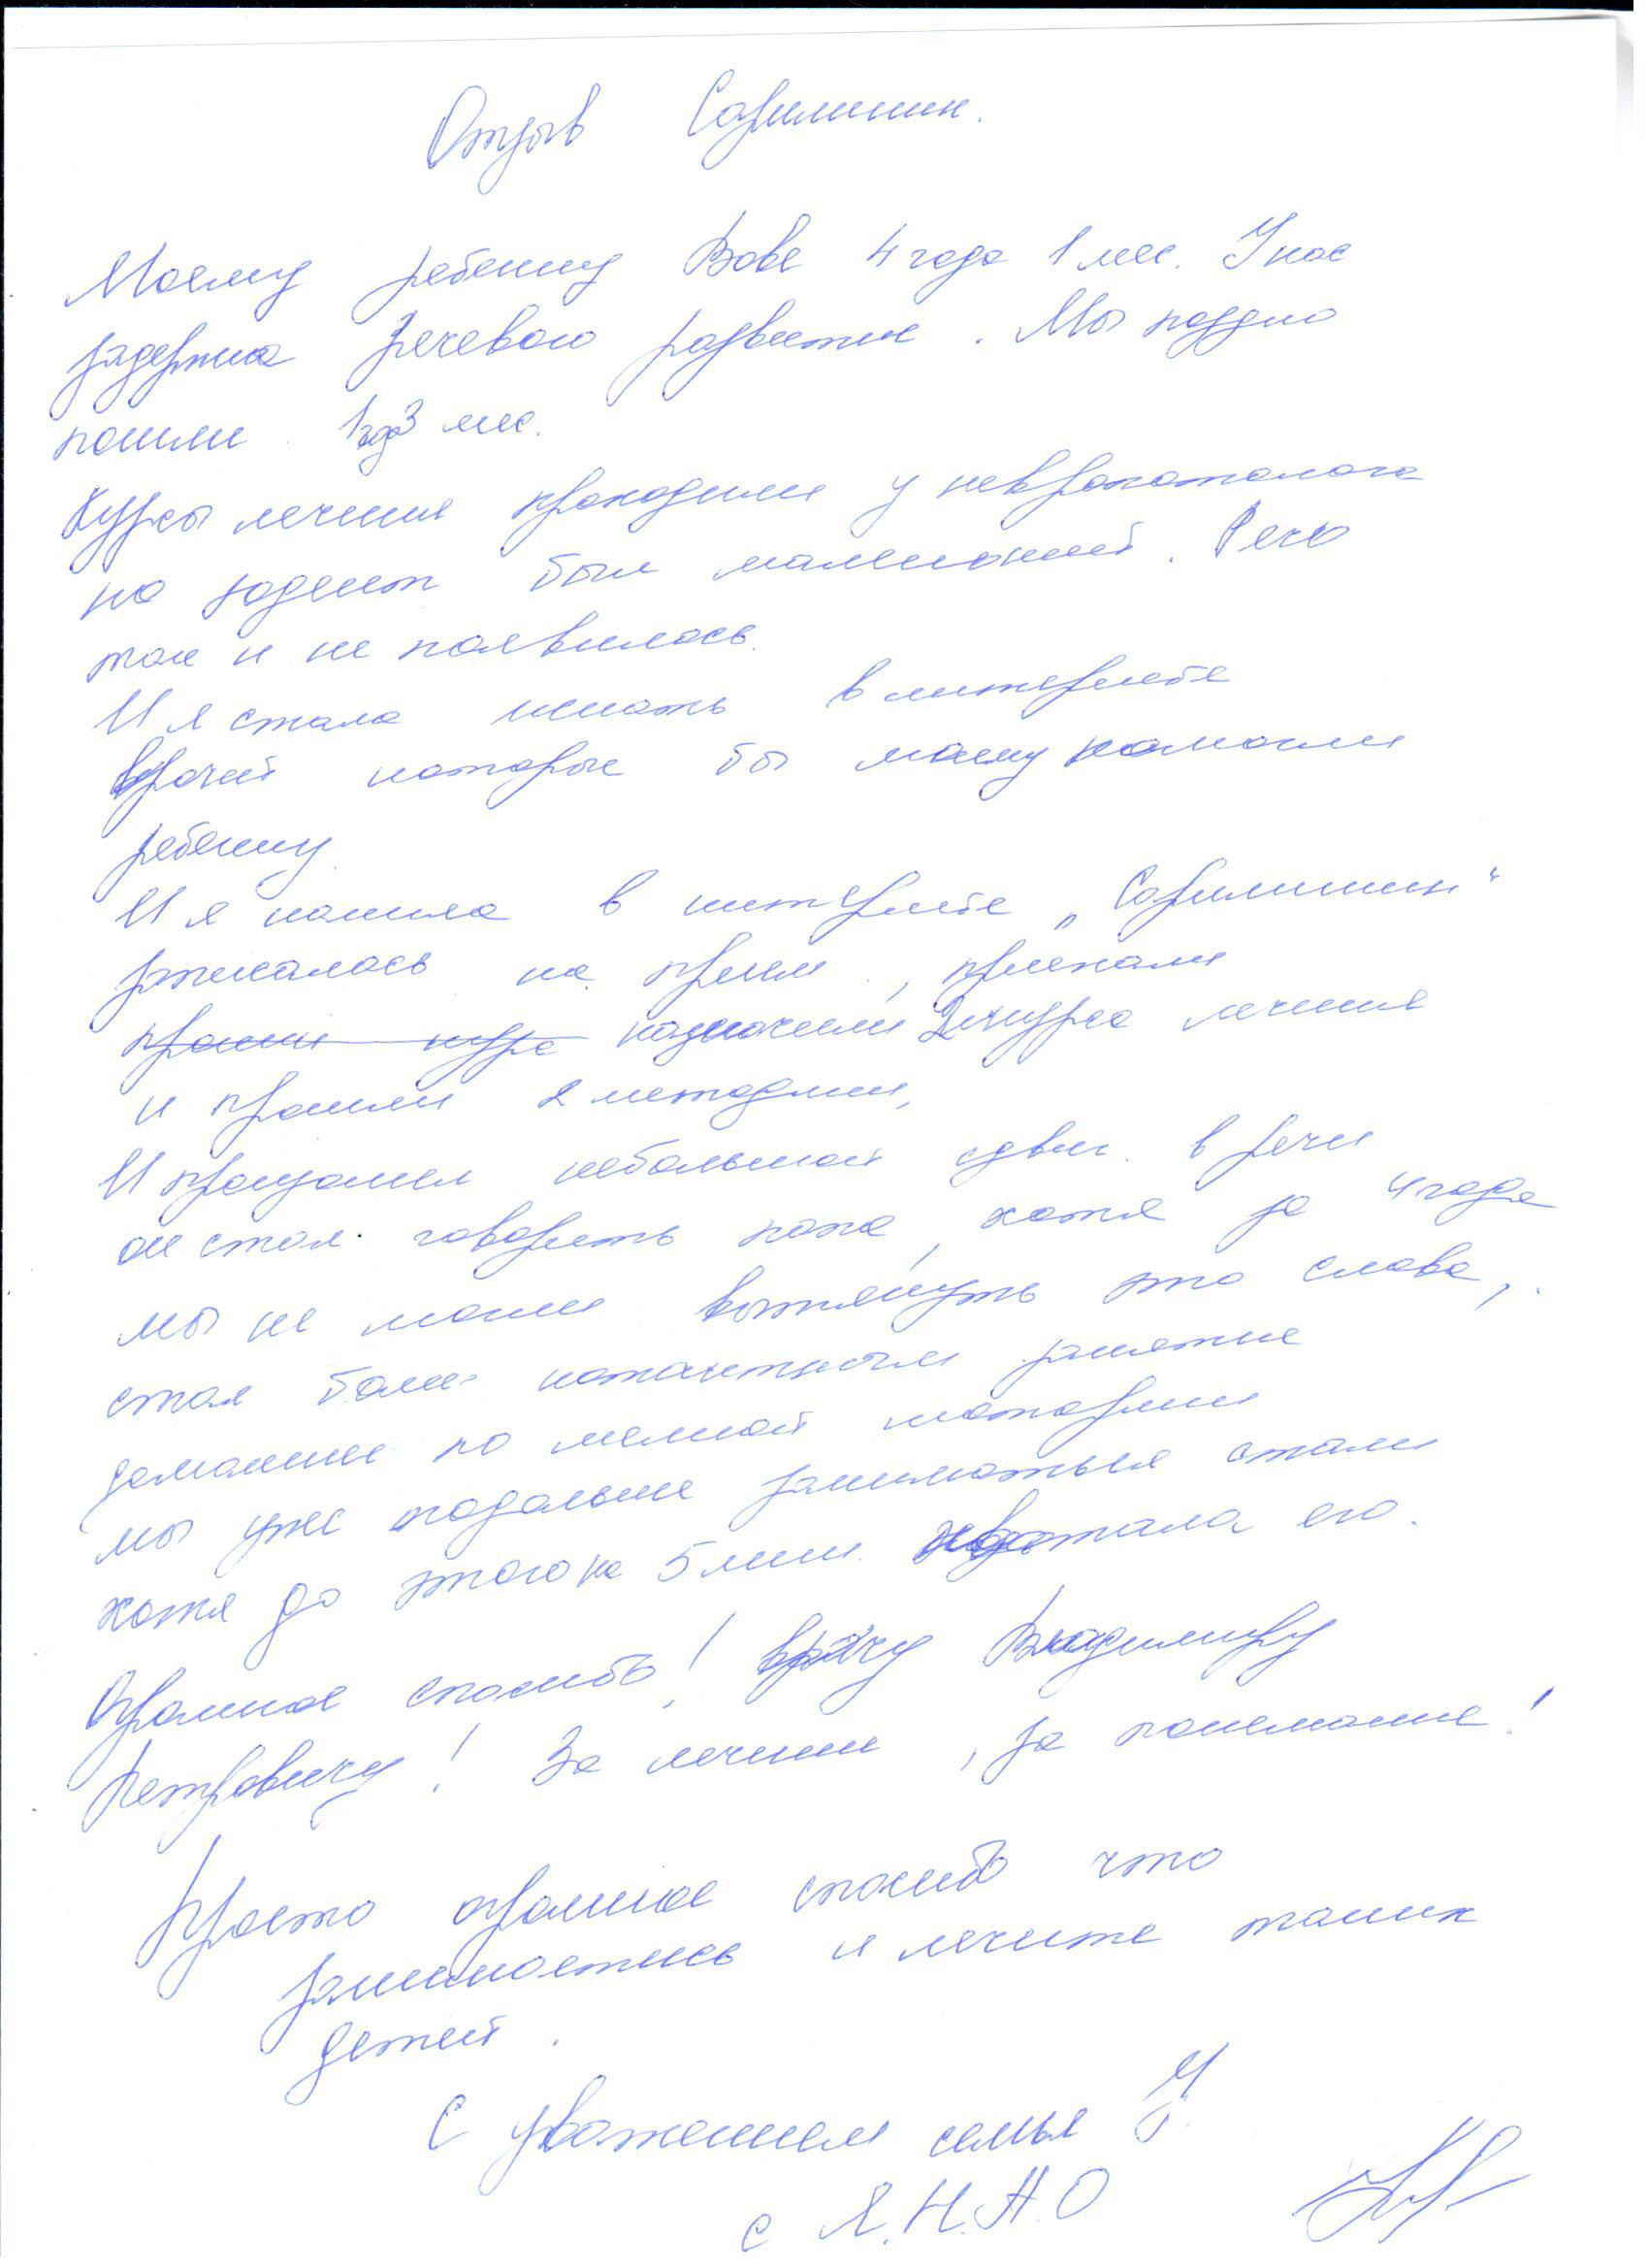 Отзыв Сарклиник.
Моему ребенку Вове 4 года 1 мес. У нас
задержка речевого развития. Мы поздно
пошли 1год3 мес.
Курсы лечения проходили у невропатолога
но эффект был маленький. Речь
так и не появилась.
И я стала искать в интернете
врачей которые бы моему помогли
ребенку.
И я нашла в интернете „Сарклиник"
записалась на прием, приехали
прошли курс назначили 2 курса лечения
и прошли 2 методики,
И произошел небольшой сдвиг в речи
он стал говорить папа, хотя за 4 года
мы не могли вытянуть это слово,
стал более контактным занятие
домашние по мелкой моторики
мы уже подольше заниматься стали
хотя до этого на 5 мин. хватала его.
Огромное спасибо! врачу Владимиру
Петровичу! За лечение, за понимание!
Просто огромное спасибо что
занимаетись и лечите таких
детей.
С уважением семья У.
с Я.Н.А.О